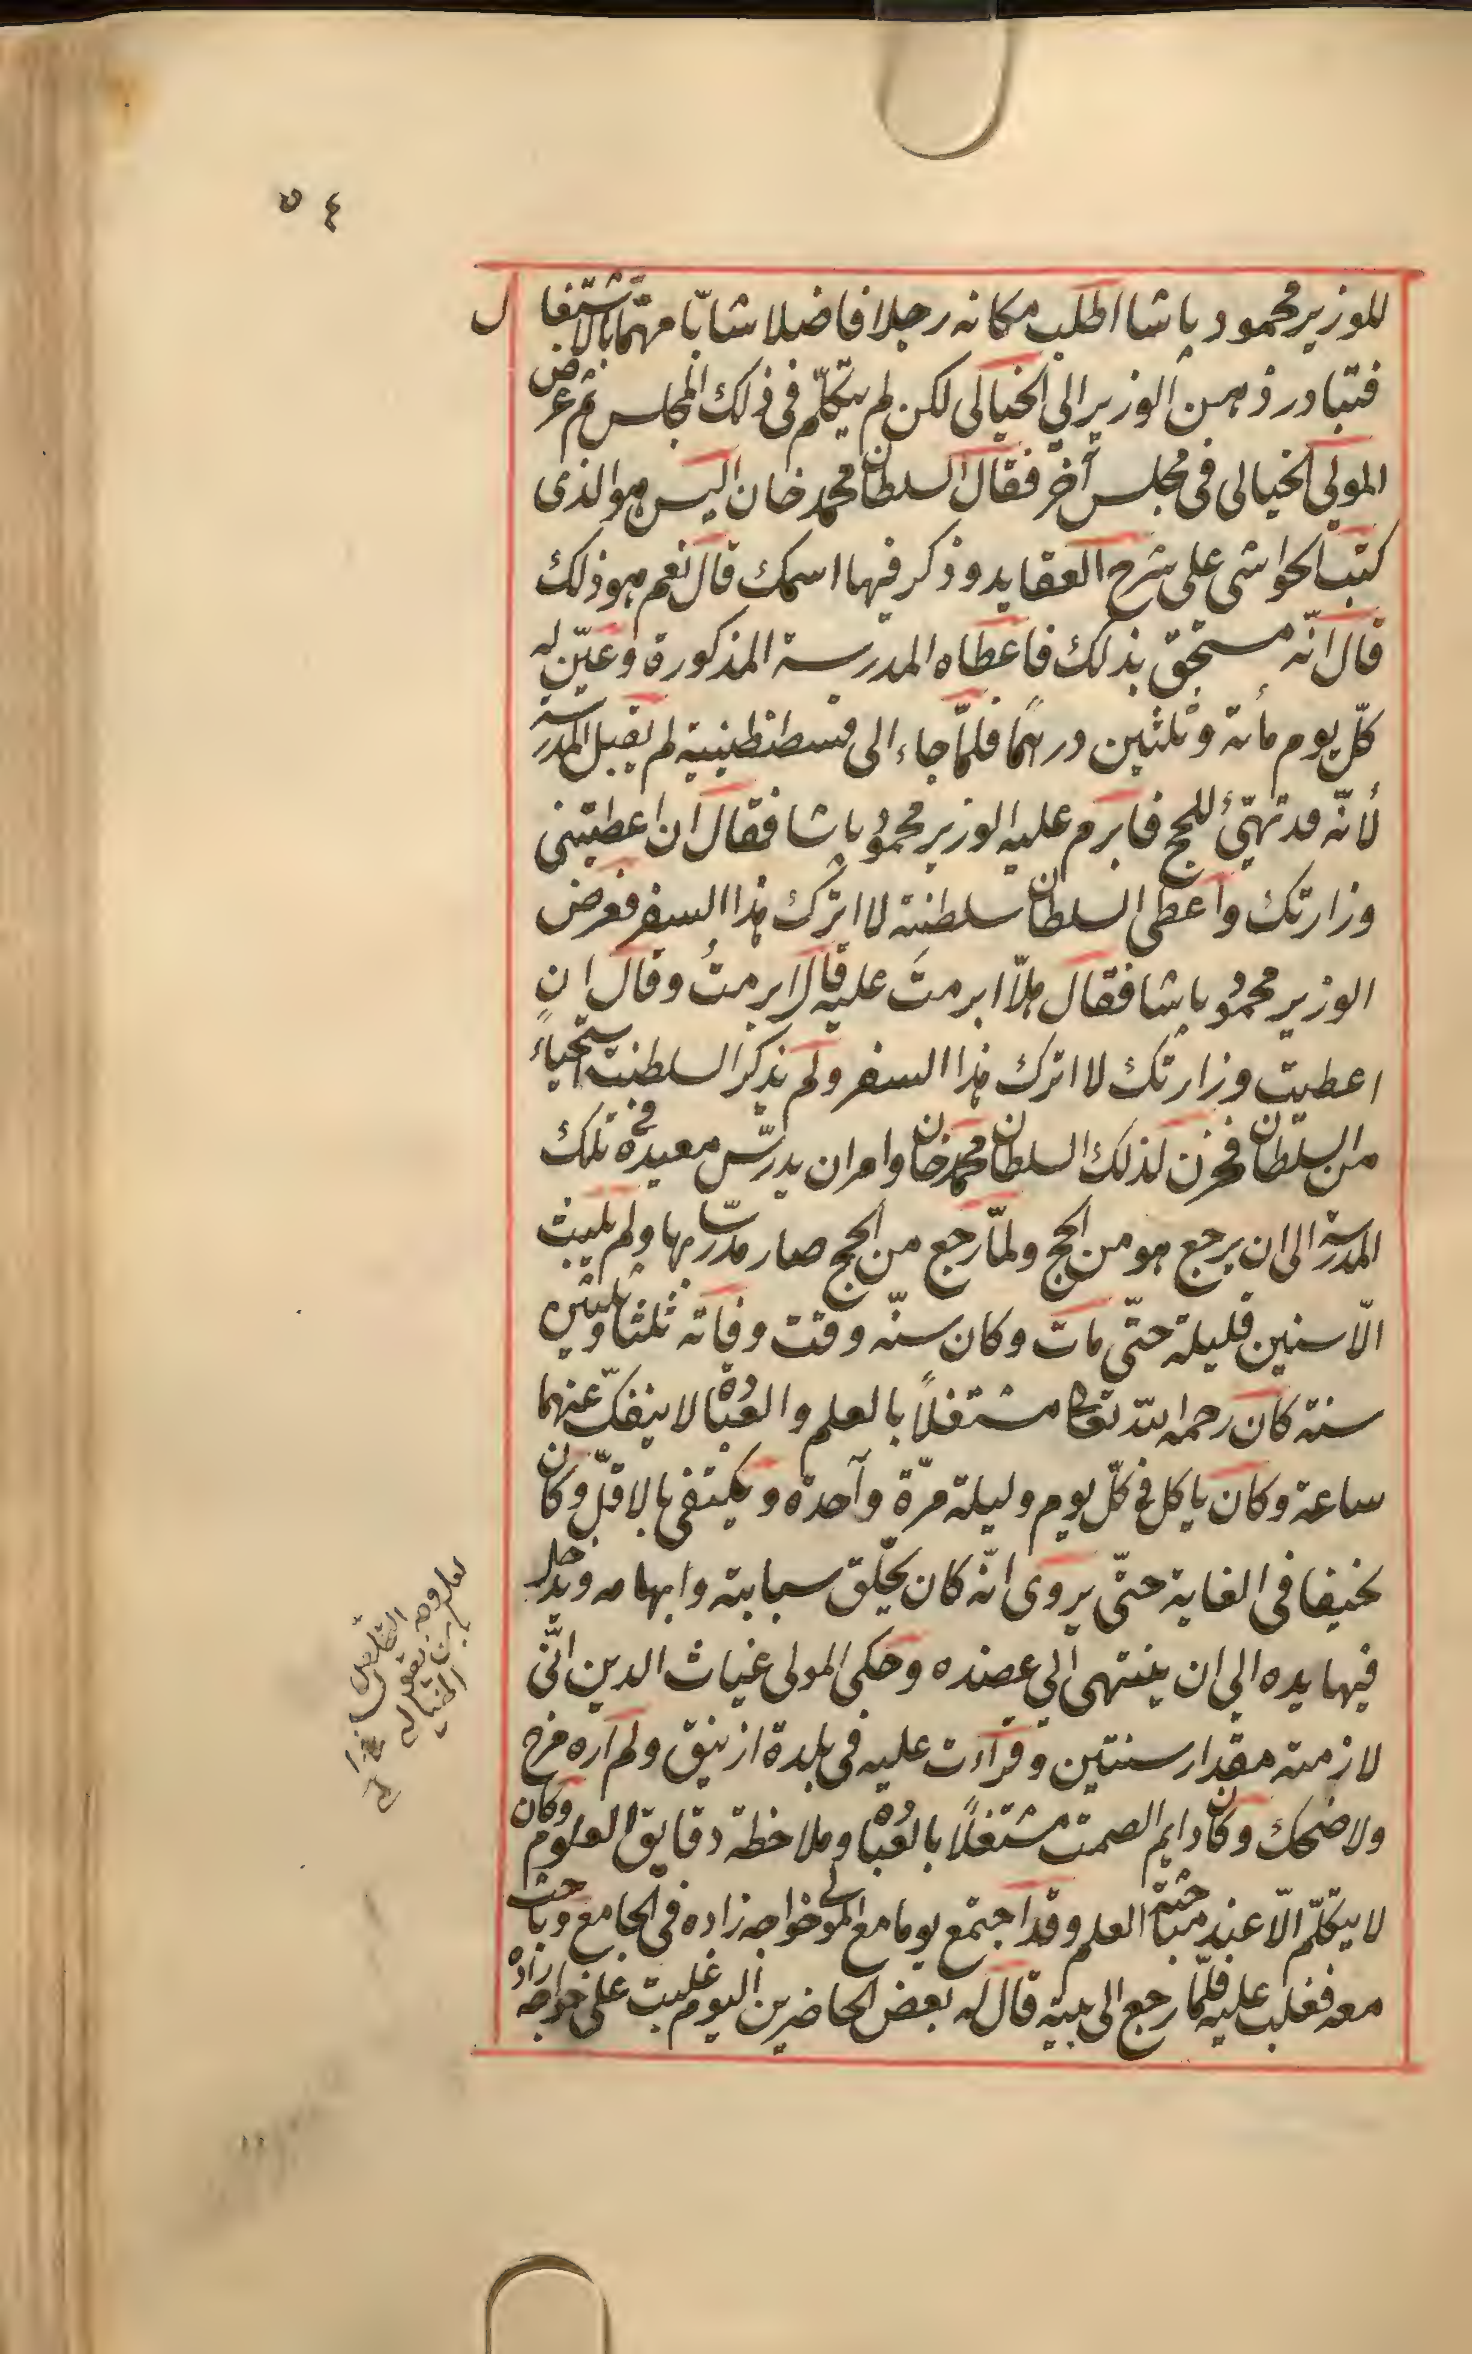 ٥٤
للوزير محمود باشا اطلب مكانه رجلا فاضلا شابّا مهتمّا بالاشتغال
فتبادر ذهن الوزير الى الخيالى لكن لم يتكلّم فى ذلك المجلس ثم عرض
المولى الخيالى فى مجلس آخر فقال السلطان محمد خان اليس هو الذى
كتب الحواشى على شرح العقايد وذكر فيها اسمك قال نعم هو ذلك
قال انّه مستحق بذلك فاعطاه المدرسة المذكورة وعيّن له
كلّ يوم مأئة وثلثين درهما فلمّا جاء الى قسطنطينية لم يقبل المدرسة
لأنّه قد تهيّئ للحج فابرم عليه الوزير محمود باشا فقال ان اعطيتنى
وزارتك واعطى السلطان سلطنته لا اترك هذا السفر فعرض
الوزير محمود باشا فقال هلّا ابرمتَ عليه قال ابرمتُ وقال ان
اعطيت وزارتك لا اترك هذا السفر ولم يذكر السلطنة استحياءً
من السلطان فحزن لذلك السلطان محمد خان وامر ان يدرّس معيده فى تلك
المدرسة الى ان يرجع هو من الحج ولمّا رجع من الحج صار مدرّسا بها ولم يلبث
الّا سنين قليلة حتّى مات وكان سنّه وقت وفاته ثلثا وثلثين
سنة كان رحمه الله تعالى مشتغلاً بالعلم والعبادة لا ينفكّ عنهما
ساعة وكان ياكل فى كلّ يوم وليلة مرّة واحدة ويكتفى بالاقلّ وكان
نحيفا فى الغاية حتّى يروى انّه كان يحلّق سبابته وابهامه ويدخل
فيها يده الى ان ينتهى الى عضده وحكى المولى غياث الدين انّى
لازمته مقدار سنتين وقرأت عليه فى بلدة ازنيق ولم اره فرح
ولا ضحك وكان دايم الصمت مشتغلاً بالعبادة وملاحظة دقايق العلوم وكان
لا يتكلّم الّا عند مباحثة العلم وقد اجتمع يوما مع المولى خواجه زاده فى الجامع وباحث
معه فغلب عليه فلمّا رجع الى بيته قال له بعض الحاضرين اليوم غلبت على خواجه زاده